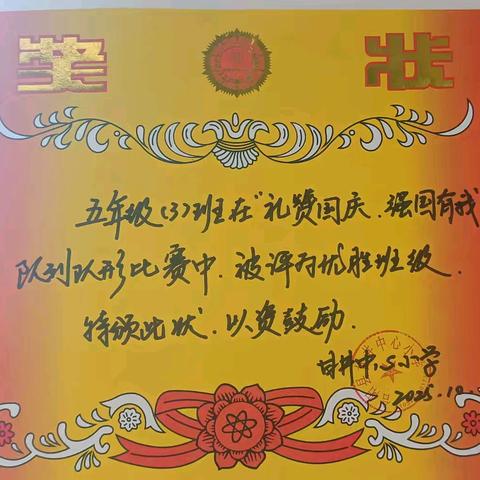 奖状
五年级(3)班在“礼赞国庆、强国有我
队列队形比赛中，被评为优胜班级，
特颁此状，以资鼓励。
中心小学
2025.10